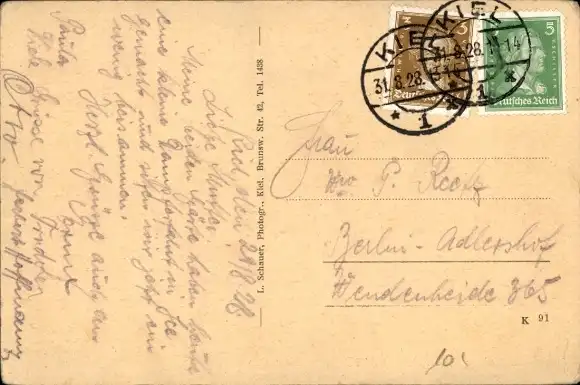 Kiel, den 29/8.28.
Liebe Mutter
Meine beiden Gäste haben heute
eine kleine Dampferfahrt in See
gemacht und sitzen wir jetzt ein
wenig beisammen.
Herzl. Grüsse auch an
Paula
Ernst
Viele Grüsse von
Otto
L. Schauer, Photogr., Kiel, Brunsw. Str. 42, Tel. 1438
KIEL
31.8.28.
1
KIEL
31.8.28. 13-14
1
3
5
Deutsches Reich
Frau
Wwe P. Reetz
Berlin-Adlershof
Wendenheide 365
K 91